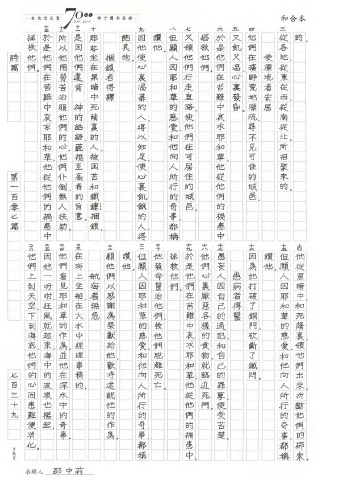 和合本
7000
的。
三從各地從東從西從南從北所招聚來的。
使漂流者安居
四他們在曠野荒地漂流尋不見可住的城邑
五又飢又渴心裏發昏。
六於是他們在苦難中哀求耶和華他從他們的禍患中
拯救他們。
七又領他們行走直路使他們往可居住的城邑。
八但願人因耶和華的慈愛和他向人所行的奇事都稱
讚他
九因他使心裏渴慕的人得以知足使心裏飢餓的人得
飽美物。
捆鎖者得釋
十那些坐在黑暗中死蔭裏的人被困苦和鐵鍊捆鎖
是因他們違背神的話語藐視至高者的旨意。
所以他用勞苦治服他們的心他們仆倒無人扶助。
於是他們在苦難中哀求耶和華他從他們的禍患中
拯救他們。
他從黑暗中和死蔭裏領他們出來折斷他們的綁索。
但願人因耶和華的慈愛和他向人所行的奇事都稱
讚他
因為他打破了銅門砍斷了鐵閂。
患病者得醫
愚妄人因自己的過犯和自己的罪孽便受苦楚
他們心裏厭惡各樣的食物就臨近死門。
於是他們在苦難中哀求耶和華他從他們的禍患中
拯救他們。
他發命醫治他們救他們脫離死亡。
但願人因耶和華的慈愛和他向人所行的奇事都稱
讚他
願他們以感謝為祭獻給他歡呼述說他的作為。
航海者得息
在海上坐船在大水中經理事務的。
他們看見耶和華的作為並他在深水中的奇事
因他一吩咐狂風就起來海中的波浪也揚起。
他們上到天空下到海底他們的心因患難便消化。
詩篇
第一百零七篇
七百三十九